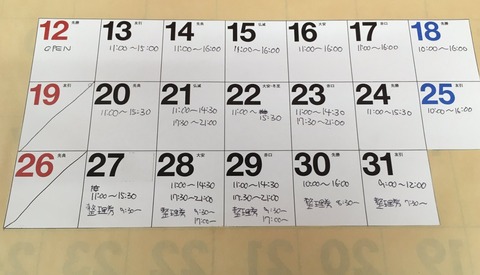 12 先勝
OPEN
13 友引
11:00~15:30
14 先負
11:00~16:00
15 仏滅
11:00~16:00
16 大安
11:00~16:00
17 赤口
11:00~16:00
18 先勝
10:00~16:00
19 友引
20 先負
11:00~15:30
21 仏滅
11:00~14:30
17:30~21:00
22 大安・冬至
11:00~15:30
23 赤口
11:00~14:30
17:30~21:00
24 先勝
11:00~15:30
25 友引
10:00~16:00
26 先負
27
11:00~15:30
整理券 9:30~
28 大安
11:00~14:30
17:30~21:00
整理券 9:30~
17:00~
29 赤口
11:00~14:30
17:30~21:00
整理券 9:30~
17:00~
30 先勝
10:00~16:00
整理券 8:30~
31 友引
9:00~12:00
整理券 7:30~